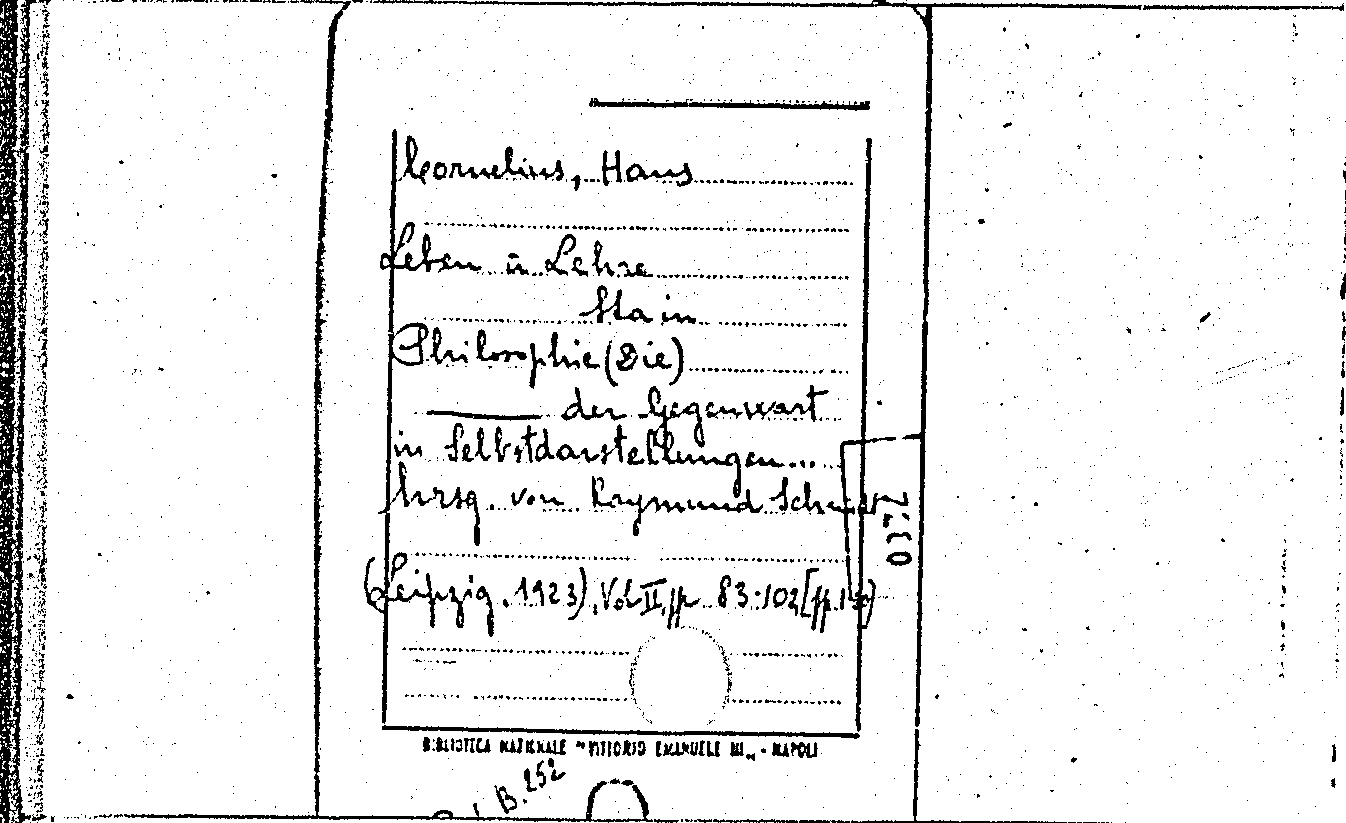 Cornelius, Hans
Leben u. Lehre
Sta in
Philosophie (Die)
der Gegenwart
in Selbstdarstellungen...
hrsg. von Raymund Schmidt
(Leipzig. 1923), Vol II, pp. 83-102 [pp.
BIBLIOTECA NAZIONALE "VITTORIO EMANUELE III" - NAPOLI
B. 252